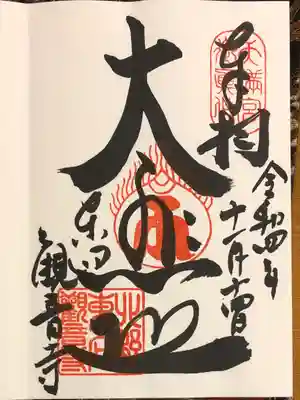 奉拝
令和四年十一月十四日
大悲殿
東向
觀音寺